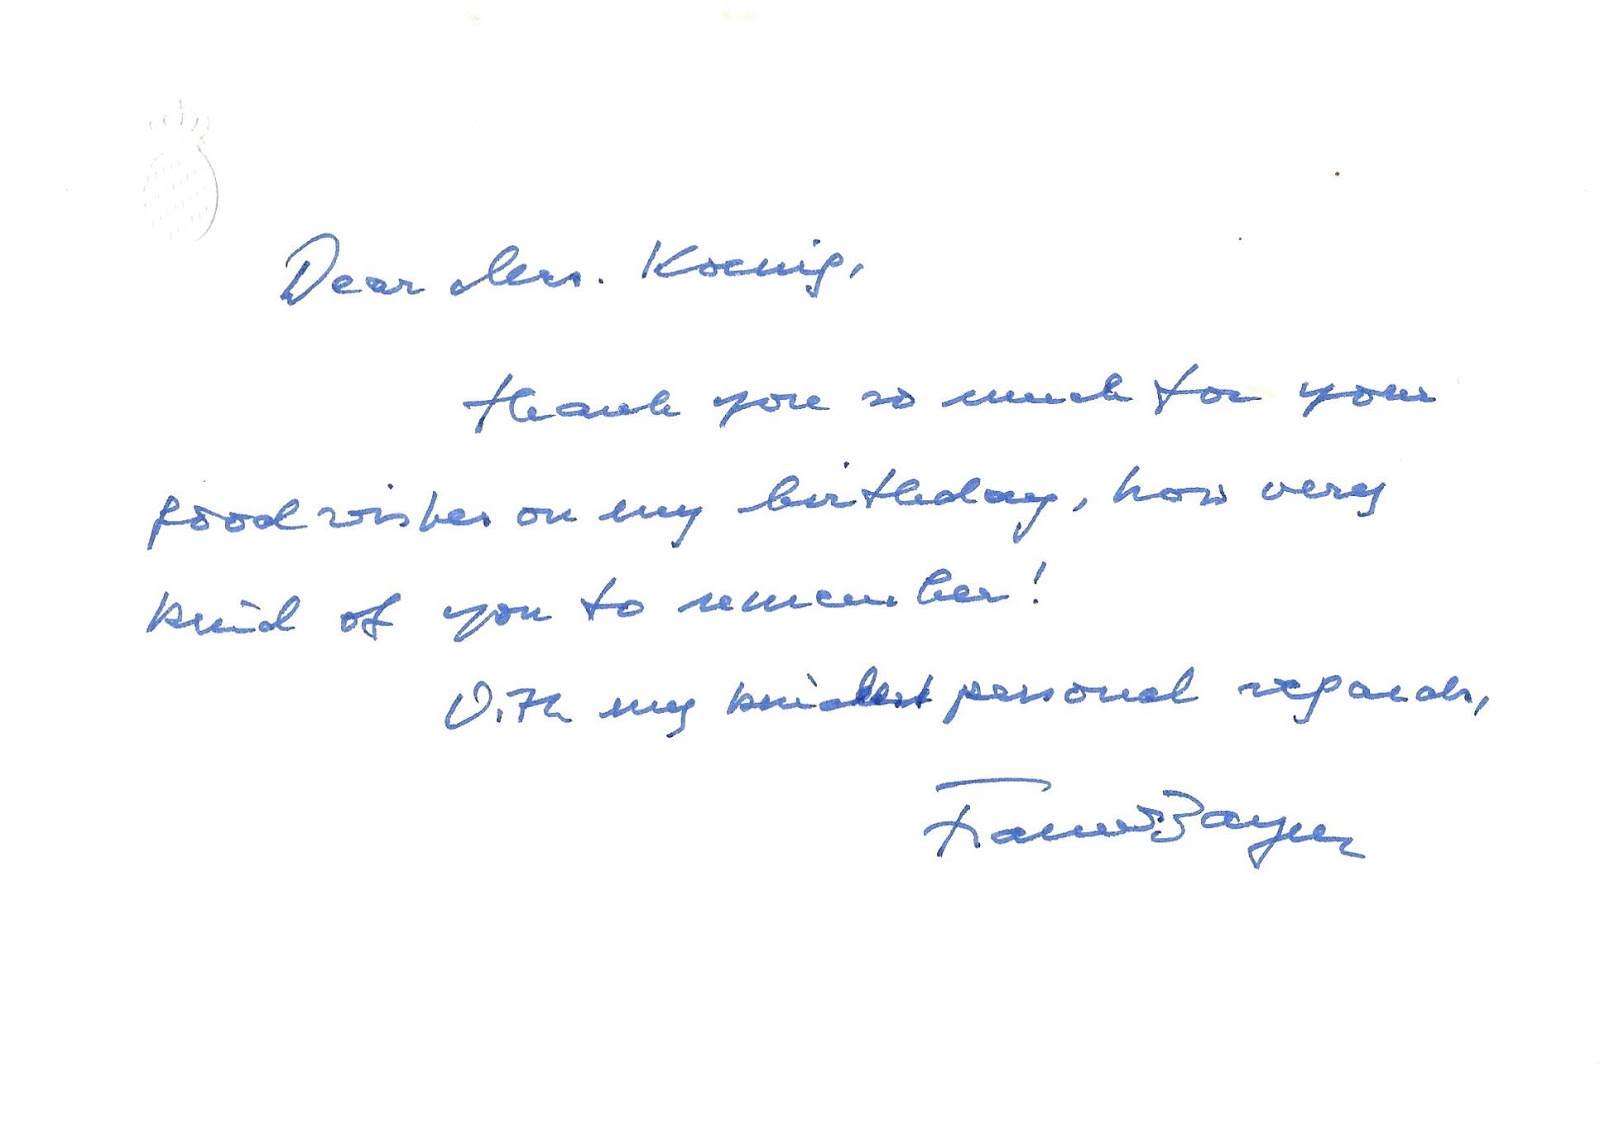 Dear Mrs. Koenig,
thank you so much for your
good wishes on my birthday, how very
kind of you to remember!
With my kindest personal regards,
Bayer